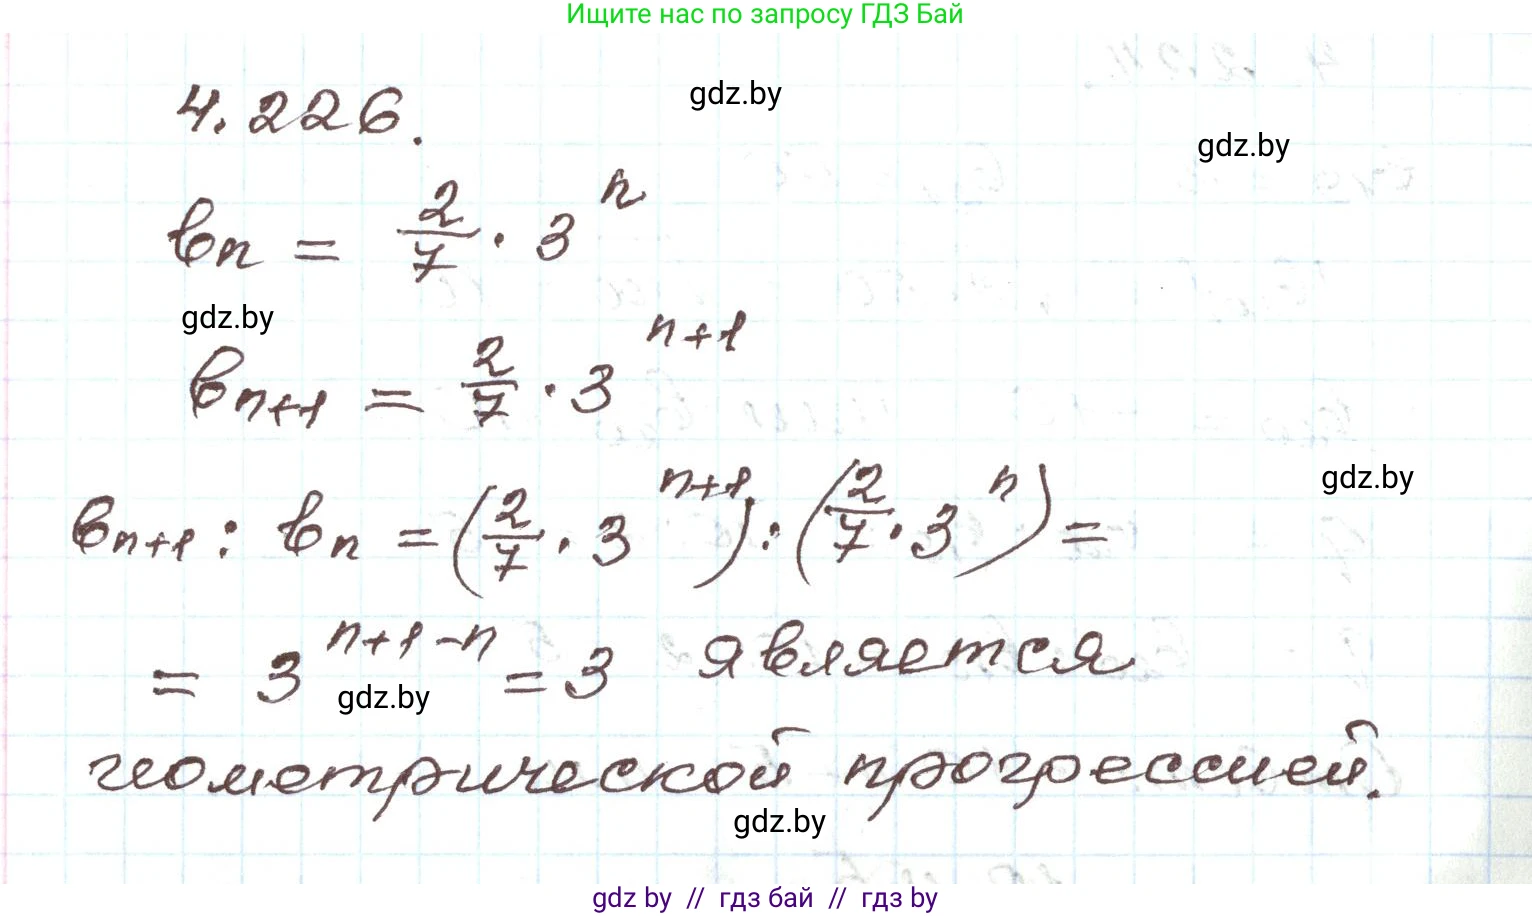 Ищите нас по запросу ГДЗ Бай
4.226.
gdz.by
gdz.by
bn = 2/7 · 3^n
gdz.by
bn+1 = 2/7 · 3^(n+1)
gdz.by
bn+1 : bn = (2/7 · 3^(n+1)) : (2/7 · 3^n) =
= 3^(n+1-n) = 3 является
gdz.by
геометрической прогрессией.
gdz.by
gdz by // гдз бай // гдз by